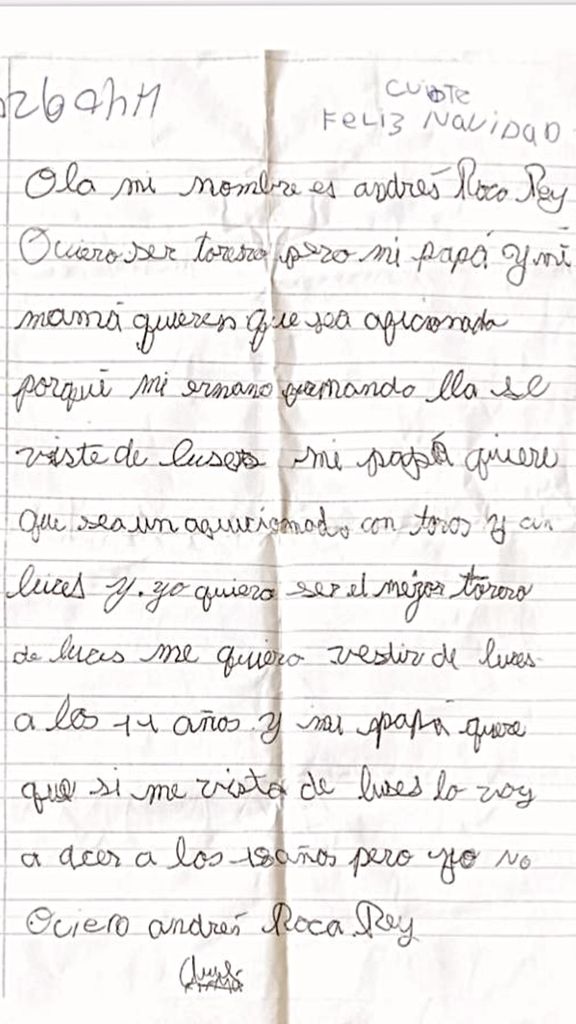 cuiDTE
FELIZ NAViDAD
Ola mi nombre es andrés Roca Rey
Quiero ser torero pero mi papá y mi
mamá quieren que sea aficionada
porqué mi ermano fernando lla se
viste de luses mi papá quiere
que sea un aquicionado con toros y
luces y.yo quiero ser el mejor torero
de luces me quiero vestir de luces
a los 11 años y mi papá quere
que si me visto de luses lo voy
a acer a los 18 años pero yo no
Qciero andrés Roca Rey